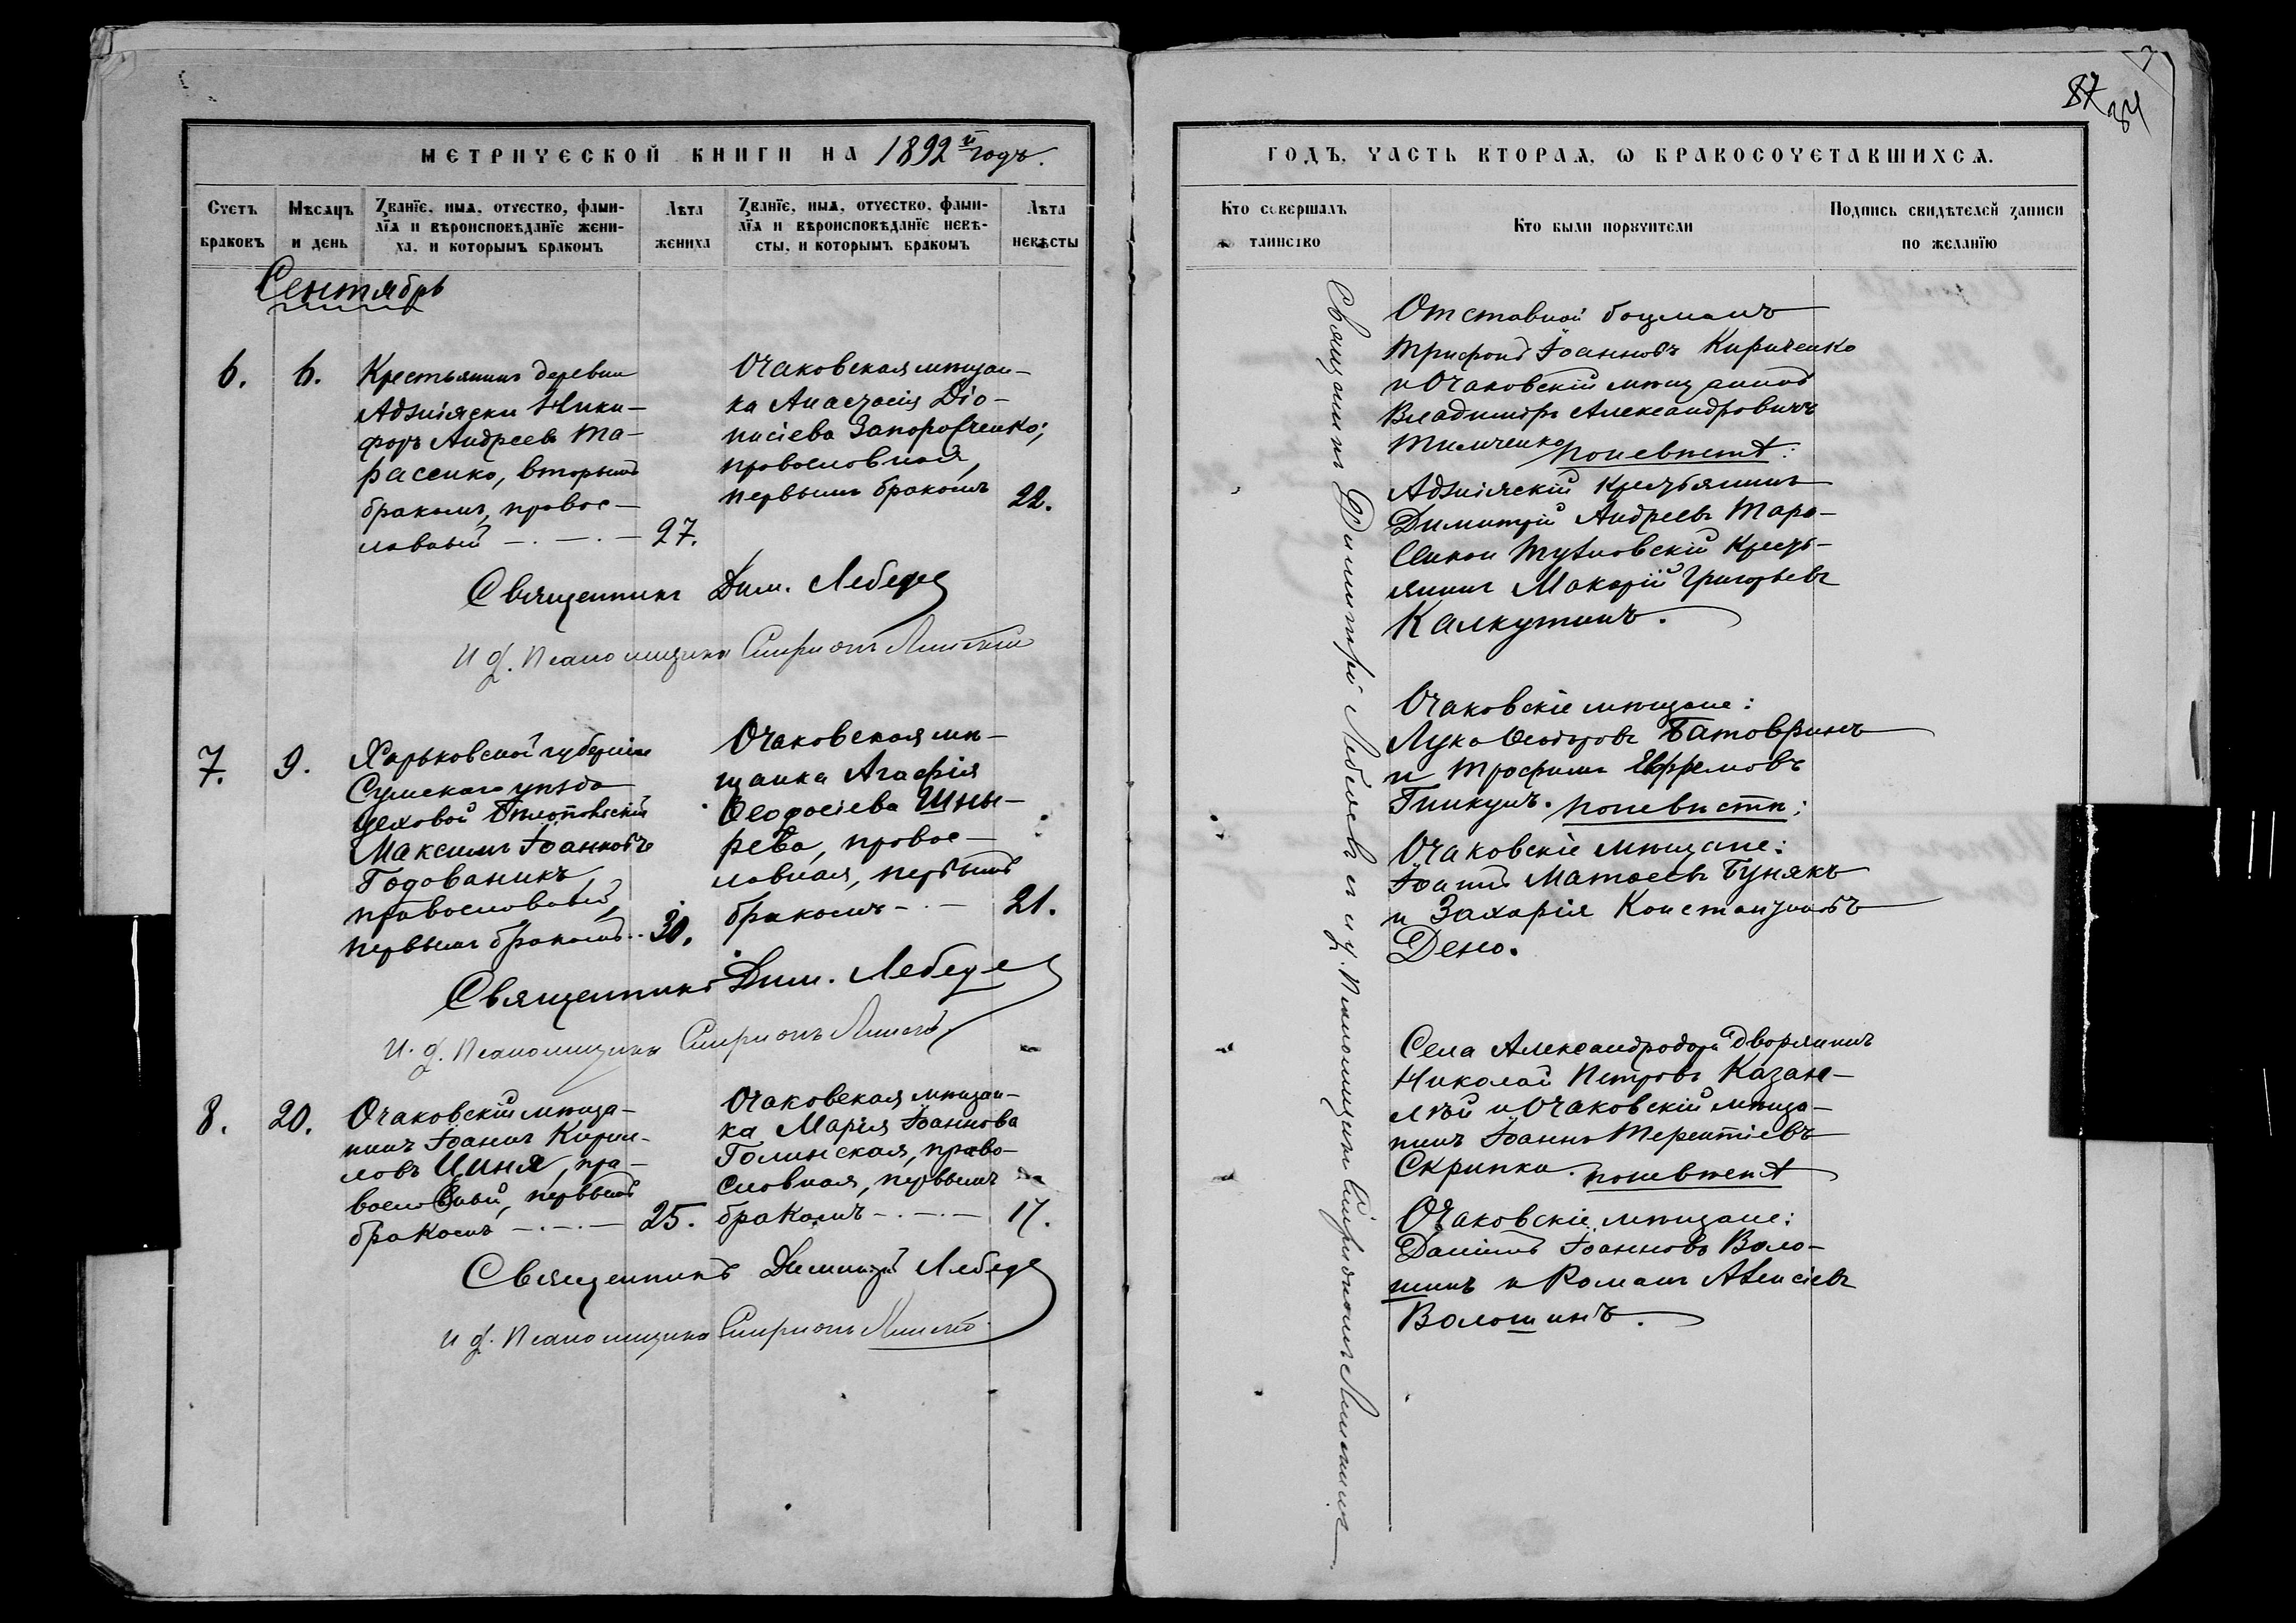 МЕТРИЧЕСКОЙ КНИГИ НА 1892й годъ.
Счетъ браковъ
Мѣсяцъ и день
Званїе, имя, отчество, фами-
лїя и вѣроисповѣданїе жени-
ха, и которымъ бракомъ
Лѣта жениха
Званїе, имя, отчество, фами-
лїя и вѣроисповѣданїе невѣ-
сты, и которымъ бракомъ
Лѣта невѣсты
Сентябрь
6.
6.
Крестьянинъ деревни
Аджіяски Ники-
форъ Андреевъ Та-
расенко, вторымъ
бракомъ, правос-
лавный
27.
Очаковская мѣщан-
ка Анастасія Діо-
нисіева Запорожченко;
православная,
первымъ бракомъ
22.
Священникъ Дим. Лебедев
И. д. Псаломщика
7.
9.
Харьковской губерніи
Сумскаго уѣзда
Цеховой
Максимъ Іоанновъ
Годованикъ,
православный,
первымъ бракомъ
30.
Очаковская мѣ-
щанка Агафія
Ѳеодосіева Шны-
рева, правос-
лавная, первымъ
бракомъ
21.
Священникъ Дим. Лебедев
И. д. Псаломщика
8.
20.
Очаковскій мѣща-
нинъ Іоаннъ Кирил-
ловъ Циня, пра-
вославный, первымъ
бракомъ
25.
Очаковская мѣщан-
ка Марія Іоаннова
Голинская, право-
славная, первымъ
бракомъ
17.
Священникъ Димитрій Лебедев
И. д. Псаломщика
87
84
ГОДЪ, ЧАСТЬ ВТОРАЯ, Ѡ БРАКОСОЧЕТАВШИХСЯ.
Кто совершалъ таинство
Кто были поручители
Подпись свидѣтелей записи
по желанїю
Священникъ Димитрій Лебедевъ и и. д. Псаломщика
Отставной боцманъ
Трифонъ Іоанновъ Кириченко
и Очаковскій мѣщанинъ
Владиміръ Александровичъ
Тимченко по невѣстѣ:
Аджіяскій крестьянинъ
Димитрій Андреевъ Тара-
сенко и крестья-
нинъ Макарій Григорьевъ
Калкутинъ.
Очаковскіе мѣщане:
Лука Ѳеодоровъ Батовринъ
и Трофимъ Ефремовъ
Гинкулъ. по невѣстѣ:
Очаковскіе мѣщане:
Іоаннъ Матѳеевъ Бунякъ
и Захарія Константиновъ
Дено.
Села Дворянинъ
Николай Петровъ Казане-
лѣй и Очаковскій мѣща-
нинъ Іоаннъ Терентіевъ
Скрипка. по невѣстѣ
Очаковскіе мѣщане:
Даніилъ Іоанновъ Воло-
шинъ и Романъ
Волошинъ.